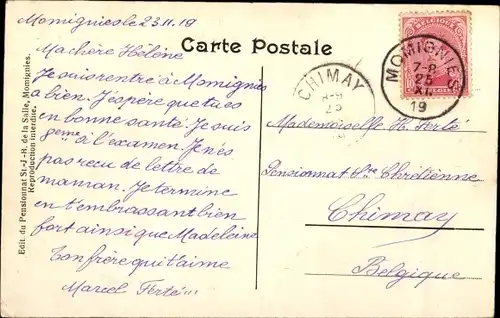 Momignies le 23.11.19
Carte Postale
Ma chère Hélène
Je suis rentré à Momignies
a bien. J'éspère que tu es
en bonne santé. Je suis
9eme à l'examen. Je n'es
pas reçu de lettre de
maman. Je termine
en t'embrassant bien
fort ainsi que Madeleine
Ton frère qui t'aime
Marcel Ferté
Edit. du Pensionnat St-J.-B. de la Salle, Momignies.
Reproduction interdite.
BELGIQUE
CHIMAY
25
MOMIGNIES
7-8
25
XI
19
Mademoiselle H. Ferté
Pensionnat Ste Chrétienne
Chimay
Belgique